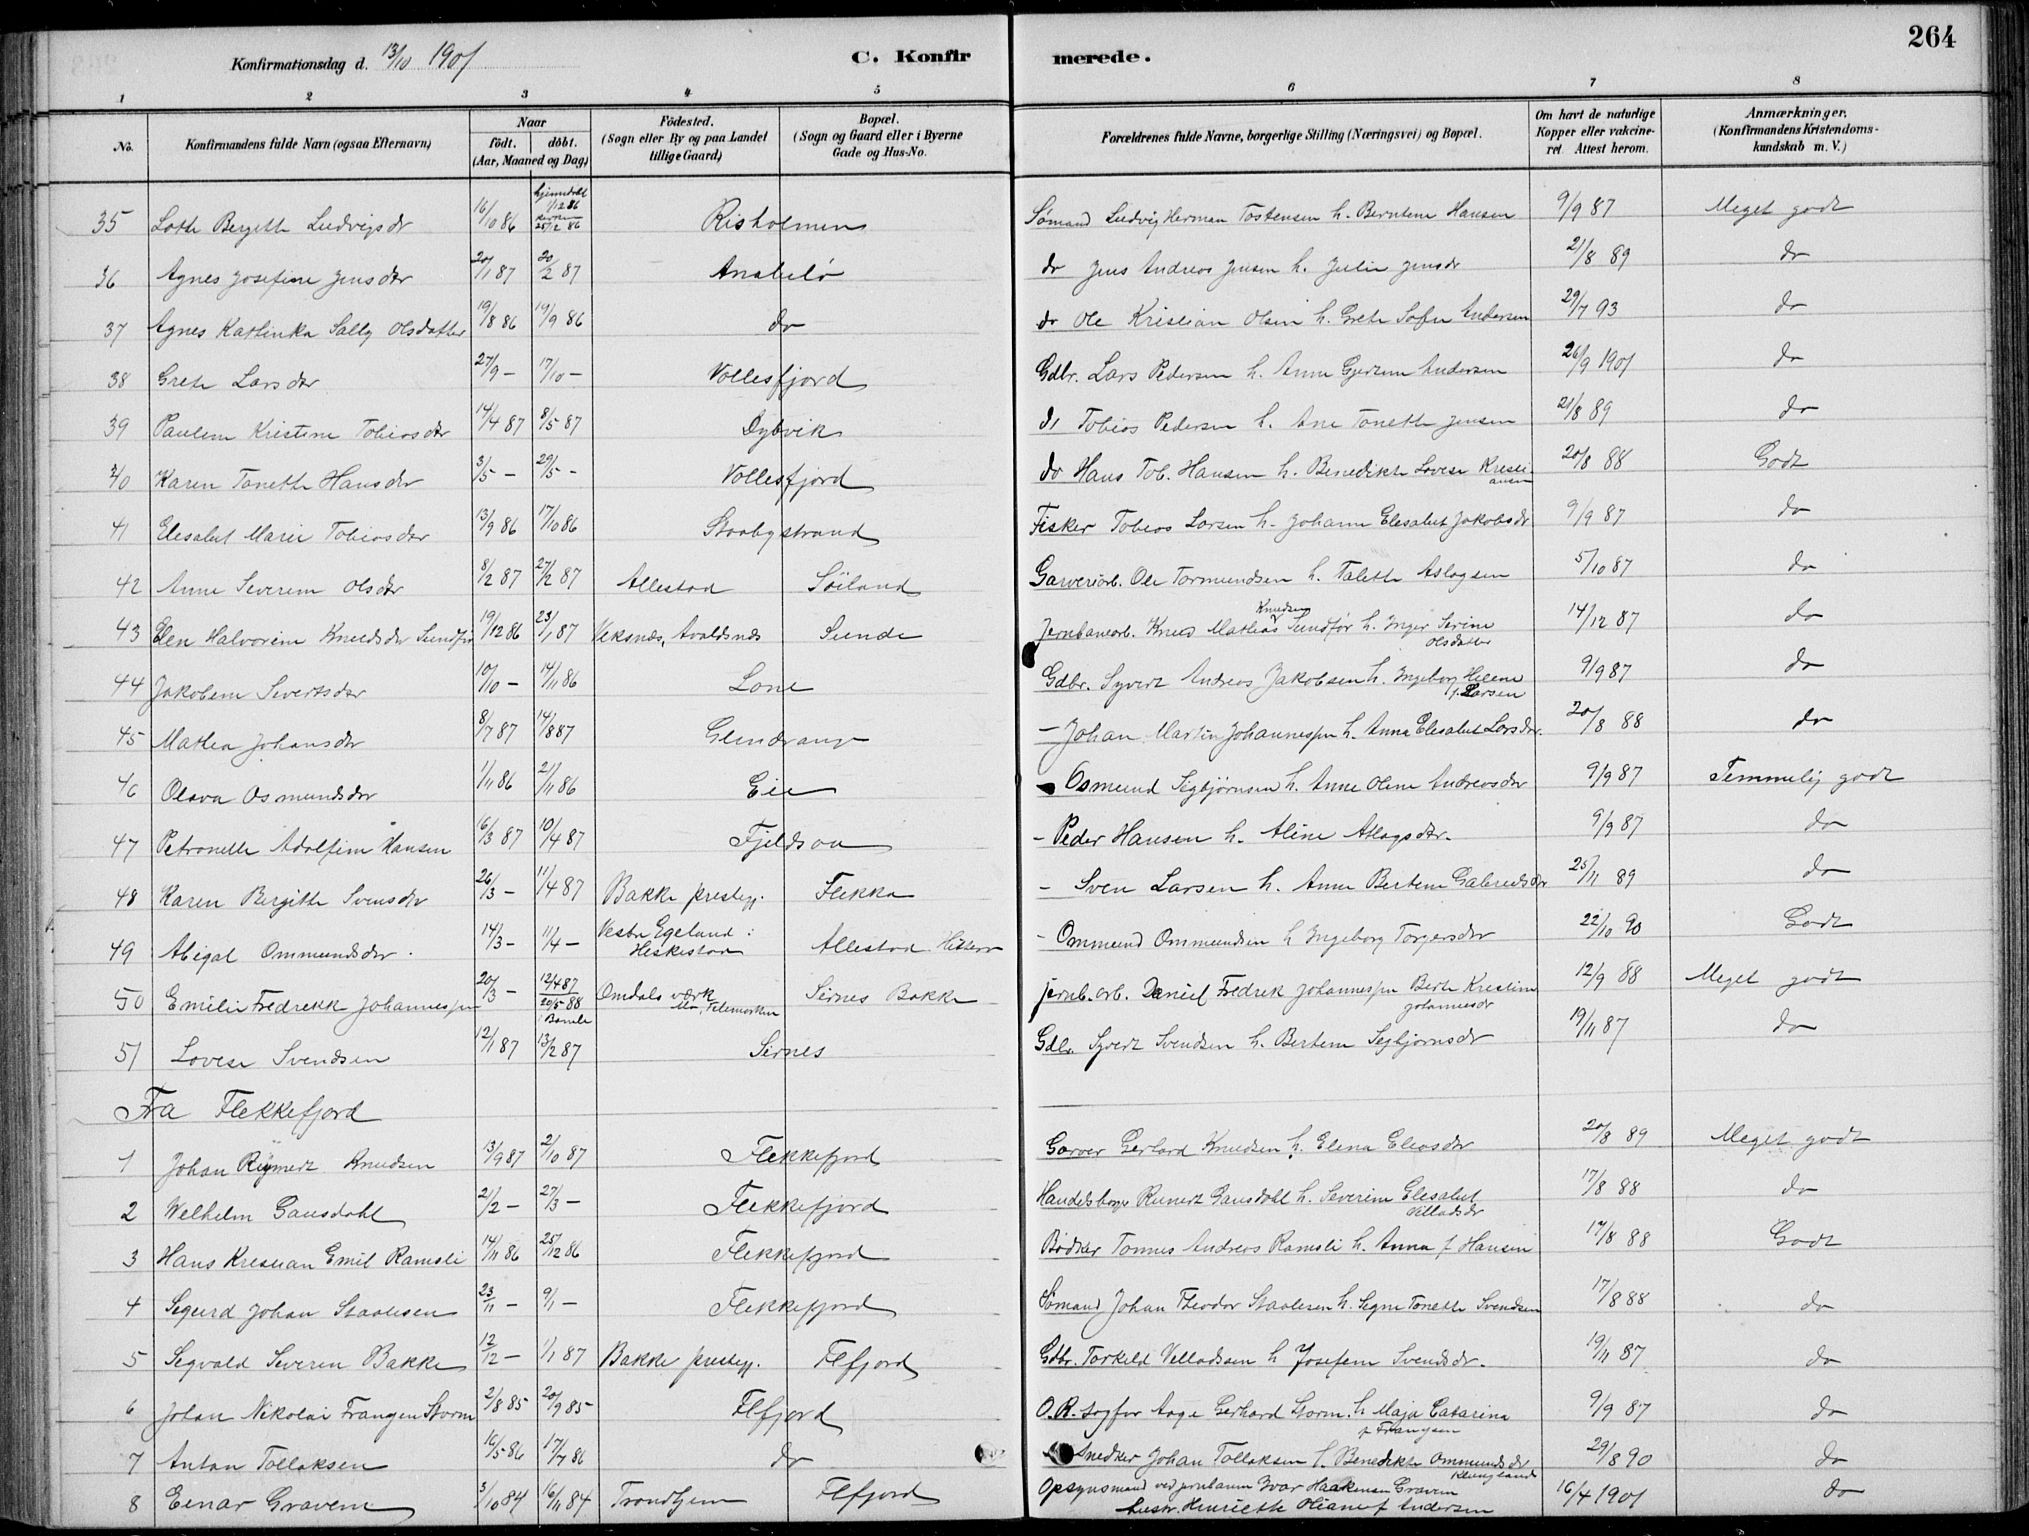 264
Konfirmationsdag d. 13/10 1901 C. Konfirmerede.
1 2 3 4 5 6 7 8
No. Konfirmandens fulde Navn (ogsaa Efternavn) Naar födt. döbt. (Aar, Maaned og Dag) Födested. (Sogn eller By og paa Landet tillige Gaard) Bopæl. (Sogn og Gaard eller i Byerne Gade og Hus-No. Forældrenes fulde Navne, borgerlige Stilling (Næringsvei) og Bopæl. Om havt de naturlige Kopper eller vakcineret. Attest herom. Anmærkninger. (Konfirmandens Kristendomskundskab m. V.)
35 Lotte Bergitte Ludvigsdr 16/10 86 hjemdøbt 1/12 86 25/12 86 Risholmen Sømand Ludvig Herman Tostensen h. Berntine Hansen 9/9 87 Meget godt
36 Agnes Josefine Jensdtr 20/1 87 20/2 87 Anabelø do Jens Andreas Jensen h. Julie Jensdr 21/8 89 do
37 Agnes Katinka Sally Olsdatter 19/8 86 19/9 86 do do Ole Kristian Olsen h. Grete Sofie Andersen 29/7 93 do
38 Grete Larsdtr 27/9 - 17/10 - Vollesfjord Gdbr. Lars Pedersen h. Anne Gjertine Andersen 26/9 1901 do
39 Pauline Kristine Tobiasdtr 14/4 87 8/5 87 Dybvik do Tobias Pedersen h. Ane Tonette Jensen 21/8 89 do
40 Karen Tonette Hansdtr 3/5 - 29/5 - Vollesfjord do Hans Tob. Hansen h. Benedikte Lovise Kristiansen 20/8 88 Godt
41 Elesabet Marie Tobiasdtr 13/9 86 17/10 86 Staabystrand Fisker Tobias Larsen h. Johanne Elesabet Jakobsdr 9/9 87 do
42 Anne Severine Olsdtr 8/2 87 27/2 87 Allestad Søiland Garveriarb. Ole Tormundsen h. Talette Aslagsen 5/10 87 do
43 Elen Halvorine Knudsdr Sundfør 19/12 86 23/1 87 Veksnæs, Avaldsnæs Sunde Jernbanearb. Knud Mathias Knudsen Sundfør h. Inger Serine Olsdatter 14/12 87 do
44 Jakobine Sivertsdtr 10/10 - 14/11 86 Lone Gdbr. Syvert Andreas Jakobsen h. Ingeborg Helene f. Larsen 9/9 87 do
45 Mathea Johansdtr 8/7 87 14/8 87 Glendrange - Johan Martin Johannessen h. Anna Elesabet Larsdtr. 20/8 88 do
46 Olava Osmundsdtr 1/11 86 21/11 86 Eie - Osmund Sigbjørnsen h. Anne Oline Andreasdtr 9/9 87 Temmelig godt
47 Petronelle Adolfine Hansen 6/3 87 10/4 87 Fjeldsaa - Peder Hansen h. Aline Aslagsdtr. 9/9 87 do
48 Karen Bergitte Svensdtr 26/3 - 11/4 87 Bakke prestegj. Flikka - Sven Larsen h. Anne Bertine Gabrielsdtr 25/11 89 do
49 Abigal Ommundsdtr. 14/3 - 11/4 - Vestre Egeland i Heskestad Allestad Hitterø - Ommund Ommundsen h Ingeborg Torgersdtr 22/10 90 Godt
50 Emilie Fredrikke Johannessen 20/3 - 12/4 87 20/5 88 i Bamle Omdals værk Mo, Telemarken Sirnes Bakke jernb. arb. Daniel Fredrik Johannessen Berte Kristine Johannesdr 12/9 88 Meget godt
51 Lovise Svendsen 12/1 87 13/2 87 Sirnes Gdbr. Syvert Svendsen h. Bertine Sigbjørnsdr 19/11 87 do
Fra Flekkefjord
1 Johan Reymert Knudsen 13/9 87 2/10 87 Flekkefjord Garver Gerhard Knudsen h. Elena Eliasdtr 20/8 89 Meget godt
2 Welhelm Gausdahl 21/2 - 27/3 - Flekkefjord Handelsborger Reinert Gausdahl h. Severine Elesabet Villadsdr 17/8 88 do
3 Hans Kristian Emil Ramsli 14/11 86 25/12 86 Flekkefjord Bødker Tønnes Andreas Ramsli h. Anna f Hansen 17/8 88 Godt
4 Sigurd Johan Staalesen 23/11 - 9/1 - Flekkefjord Sømand Johan Theodor Staalesen h. Signe Tonette Svendsen 17/8 88 do
5 Sigvald Severin Bakke 12/12 - 1/1 87 Bakke prestegj. Flfjord Gdbr. Torkild Velladsen h Josefine Svendsdr. 19/11 87 do
6 Johan Nikolai Frangen Storm 2/8 85 20/9 85 Flfjord O.R. sagfør Aage Gerhard Storm h Maja Catarina f Frangsen 9/9 87 do
7 Anton Tollaksen 16/5 86 17/7 86 do Snedker Johan Tollaksen h. Benedikte Ommundsdr Klungland 29/8 90 do
8 Einar Gravem 3/10 84 16/11 84 Trondhjem Flfjord Opsynsmand ved jernbanen Ivar Haakensen Gravem hustr. Henriette Oliane f Andersen 16/4 1901 do